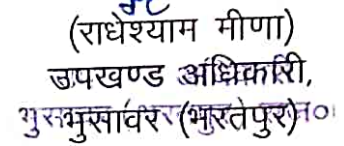 (राधेश्याम मीणा)
उपखण्ड अधिकारी,
भुसावर (भरतपुर)